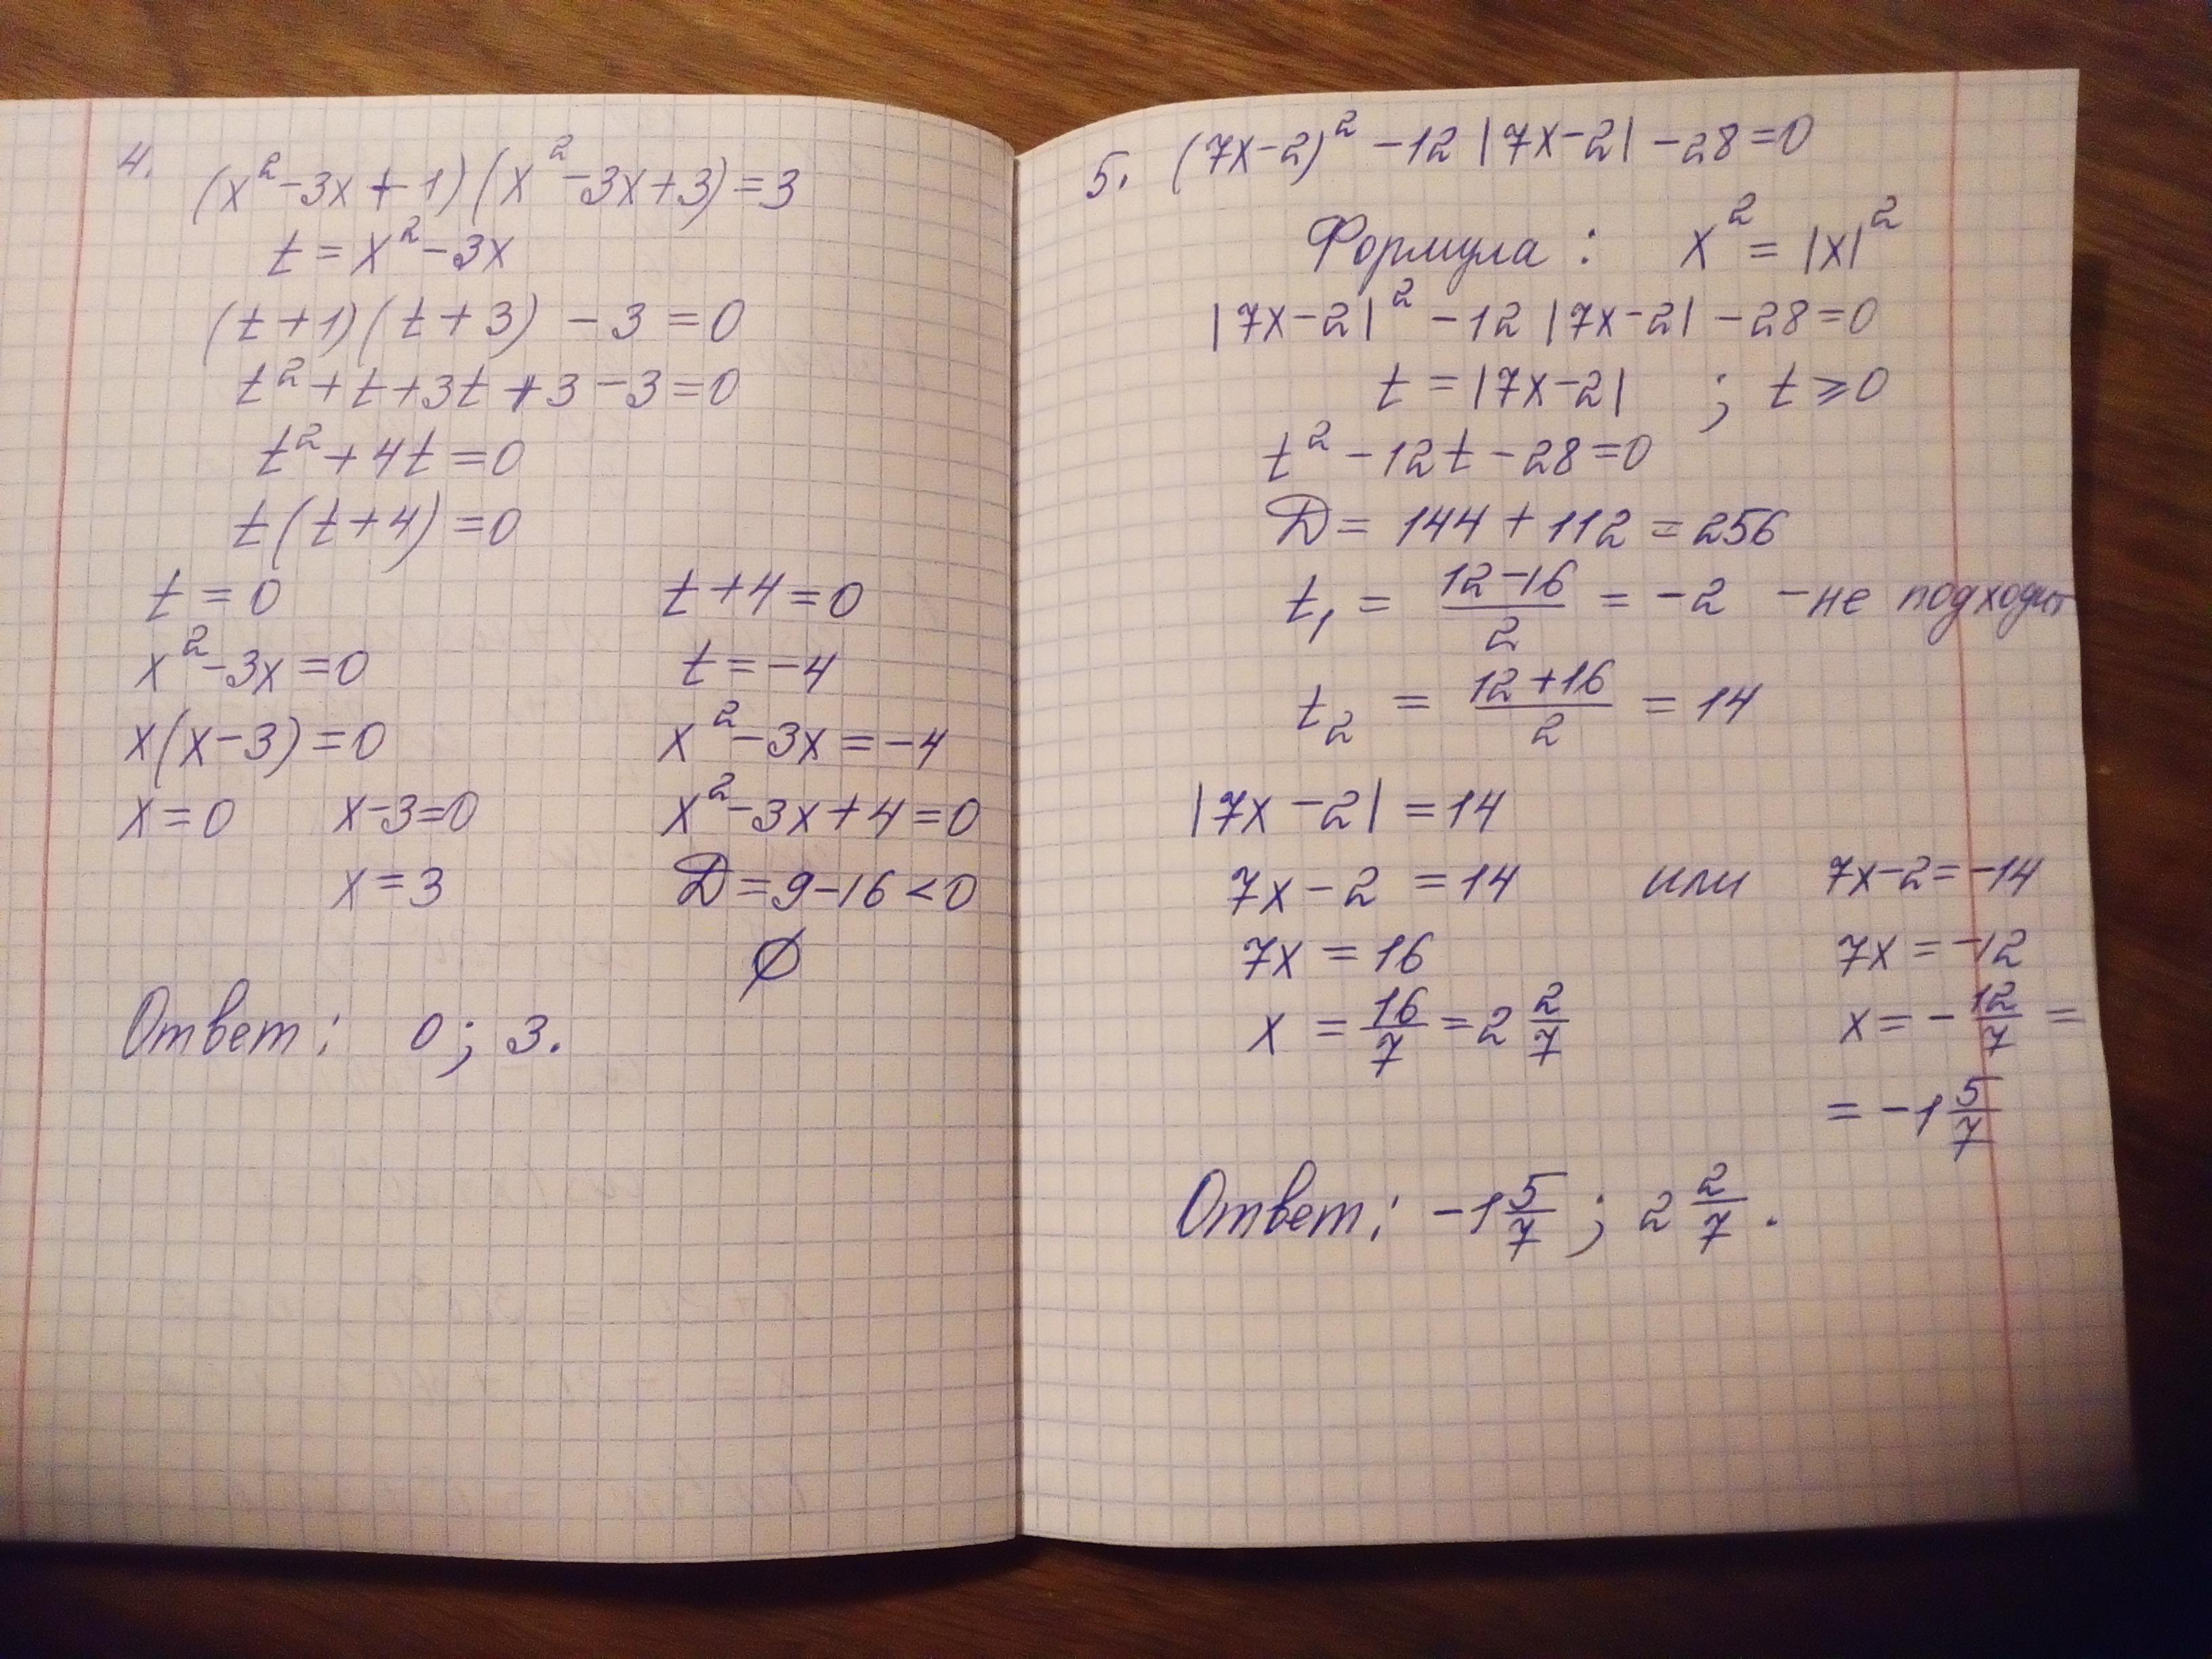 4. (x²-3x+1)(x²-3x+3)=3
t=x²-3x
(t+1)(t+3)-3=0
t²+t+3t+3-3=0
t²+4t=0
t(t+4)=0
t=0 t+4=0
x²-3x=0 t=-4
x(x-3)=0 x²-3x=-4
x=0 x-3=0 x²-3x+4=0
x=3 D=9-16<0
∅
Ответ: 0; 3.
5. (7x-2)²-12|7x-2|-28=0
Формула: x²=|x|²
|7x-2|²-12|7x-2|-28=0
t=|7x-2| ; t⩾0
t²-12t-28=0
D=144+112=256
t₁=(12-16)/2=-2 -не подходит
t₂=(12+16)/2=14
|7x-2|=14
7x-2=14 или 7x-2=-14
7x=16 7x=-12
x=16/7=2 2/7 x=-12/7=
=-1 5/7
Ответ: -1 5/7; 2 2/7.